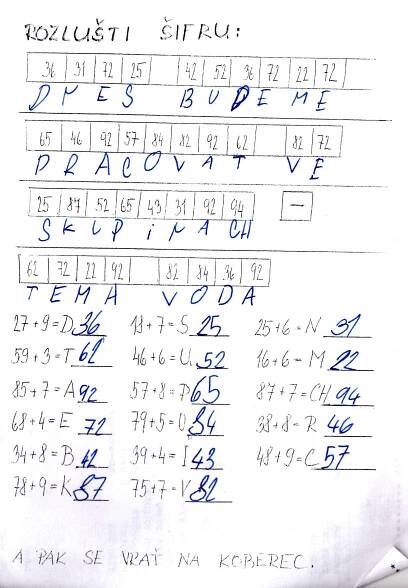 ROZLUŠTI ŠIFRU:
36 31 72 25 42 52 36 72 22 72
DNES BUDEME
65 46 92 57 84 82 92 62 82 72
PRACOVAT VE
25 87 52 65 43 31 92 94 –
SKUPiNACH
62 72 22 92 82 84 36 92
TEMA VODA
27+9=D 36 18+7=S 25 25+6=N 31
59+3=T 62 46+6=U 52 16+6=M 22
85+7=A 92 57+8=P 65 87+7=CH 94
68+4=E 72 79+5=O 84 38+8=R 46
34+8=B 42 39+4=I 43 48+9=C 57
78+9=K 87 75+7=V 82
A PAK SE VRAŤ NA KOBEREC.